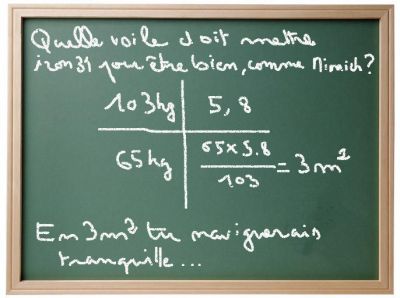 Quelle voile doit mettre
izon31 pour être bien, comme Nimich?
103kg 5,8
65kg 65x5.8/103 = 3m²
En 3m² tu naviguerais
tranquille...